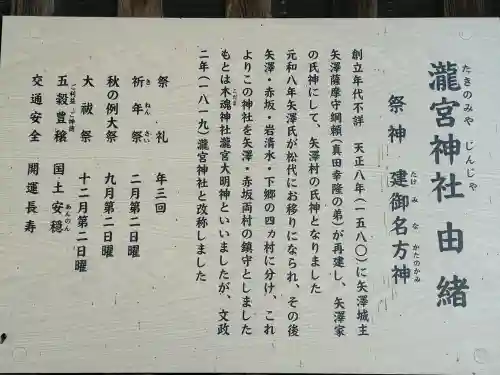 瀧宮神社由緒
たきのみや じんじゃ
祭神 建御名方神
たけみなかたのかみ
創立年代不詳 天正八年(一五八〇)に矢澤城主
矢澤薩摩守綱頼(真田幸隆の弟)が再建し、矢澤家
の氏神にして、矢澤村の氏神となりました
元和八年矢澤氏が松代にお移りになられ、その後
矢澤・赤坂・岩清水・下郷の四ヵ村に分け、これ
よりこの神社を矢澤・赤坂両村の鎮守としました
もとは木魂神社瀧宮大明神といいましたが、文政
こだま
二年(一八一九)瀧宮神社と改称しました
祭礼 年三回
祈年祭 二月第二日曜
きねんさい
秋の例大祭 九月第二日曜
大祓祭 十二月第二日曜
ご利益・ご神徳
五穀豊穣 国土安穏
あんのん
交通安全 開運長寿